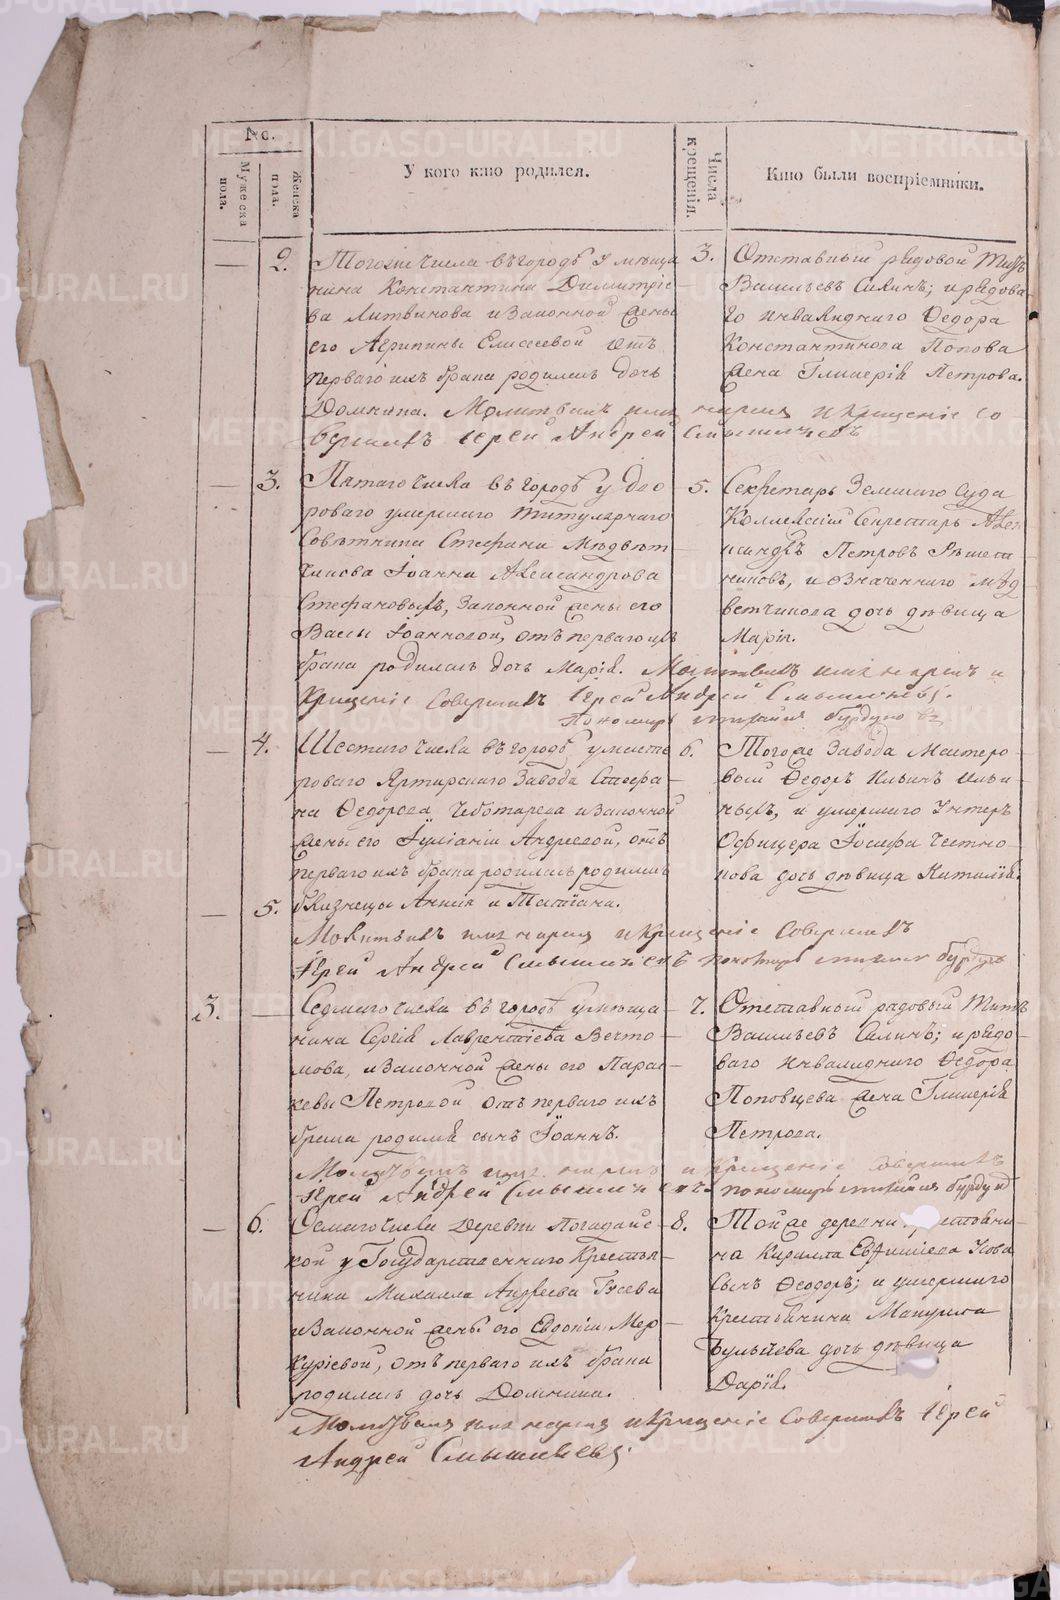 No.
Мужеска пола.
Женска пола.
У кого кто родился.
Числа крещенія.
Кто были воспріемники.
2. Тогоже числа въ городѣ у мѣща
нина Константина Димитріе-
ва Литвинова и законной жены
его Агрипины Елисеевой отъ
перваго ихъ брака родилась дочь
Домника. Молитвилъ имя нарекъ и крещеніе со-
вершилъ іерей Андрей Смышляевъ
3. Отставный рядовой Титъ
Васильевъ Силинъ; и рядова-
го инвалиднаго Ѳедора
Константинова Попова
жена Гликерія Петрова.
3. Пятаго числа въ городѣ у дво
роваго умершаго титулярнаго
Совѣтника Стефана Мѣдвѣт
чикова Іоанна Александрова
Стефановыхъ, законной жены его
Вассы Іоанновой, отъ перваго ихъ
брака родилась дочь Марія. Молитвилъ имя нарекъ и
крещеніе совершилъ Іерей Андрей Смышляевъ.
Пономарь
5. Секретарь Земскаго Суда
Коллежскій Секретарь Алек
сандръ Петровъ Рѣшет
никовъ, и означеннаго Мѣд
ветчикова дочь дѣвица
Марія.
4. Шестаго числа въ городѣ у масте
роваго Артинскаго Завода Стефа-
на Ѳедорова Чеботарева и законной
жены его Іуліаніи Андреевой, отъ
перваго ихъ брака родилась родились
5. близнецы Анна и Татіана.
Молитвилъ имя нарекъ и крещеніе совершилъ
Іерей Андрей Смышляевъ пономарь
6. Тогоже Завода Мастеро-
вой Ѳедоръ Ильинъ Ильи-
ныхъ, и умершаго Унтеръ
Офицера Іосифа Честно-
кова дочь дѣвица Наталія.
3. Седмаго числа въ городѣ у мѣща
нина Сергія Лаврентіева Вечто-
мова, и законной жены его Парас-
кевы Петровой отъ перваго ихъ
брака родился сынъ Іоаннъ.
Молитвилъ имя нарекъ и крещеніе совершилъ
Іерей Андрей Смышляевъ пономарь
7. Отставный рядовый Титъ
Васильевъ Силинъ; и рядо-
ваго инвалиднаго Ѳедора
Поповцева жена Гликерія
Петрова.
6. Осмаго числа деревни Погадайс-
кой у Государственнаго Крестья-
нина Михаила Андреева Гусева
и законной жены его Евдокіи Мер-
куріевой, отъ перваго ихъ брака
родилась дочь Домника.
Молитвилъ имя нарекъ и крещеніе совершилъ Іерей
Андрей Смышляевъ
8. Той же деревни
на Кирилла Евфиміева Усова
сынъ Ѳеодоръ; и умершаго
крестьянина
дочь дѣвица
Дарія.
METRIKI.GASO-URAL.RU